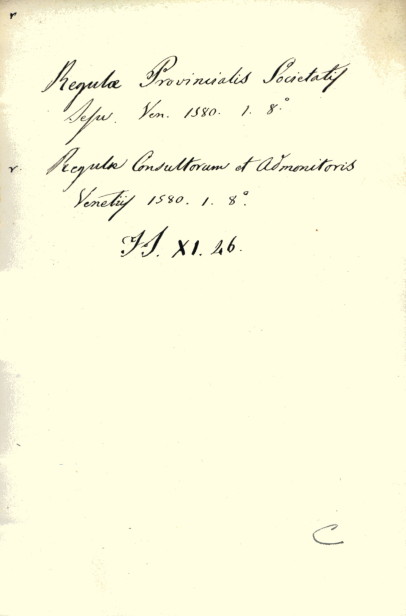 r
Regulæ Provincialis Societatis
Jesu. Ven. 1580. 1. 8.°
r. Regulæ Consultorum et Admonitoris
Venetiis 1580. 1. 8°.
XI. 46.
C